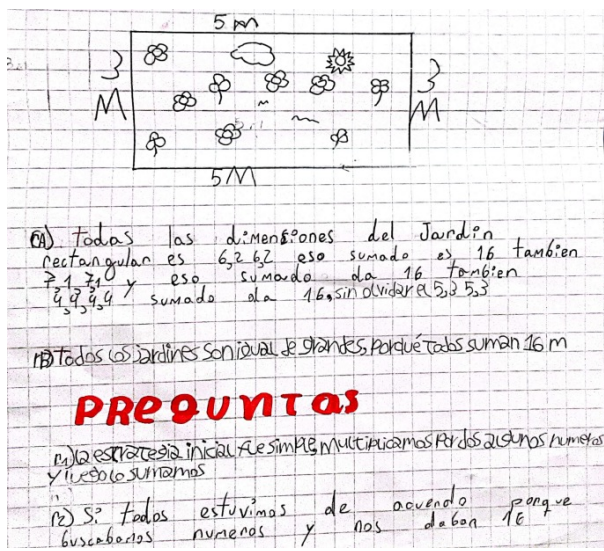 5 m
3 M
3 M
5 M
A) todas las dimensiones del Jardin
rectangular es 6,2 6,2 eso sumado es 16 tambien
7,1 7,1 y eso sumado da 16 tambien
4,4,4,4 sumado da 16, sin olvidar el 5,3 5,3
B) todos los jardines son igual de grandes, porqué todos suman 16 m
PREGUNTAS
1) la estrategia inicial fue simple, multiplicamos por dos algunos numeros
y luego lo sumamos
2) Si todos estuvimos de acuerdo porque
buscabamos numeros y nos daban 16